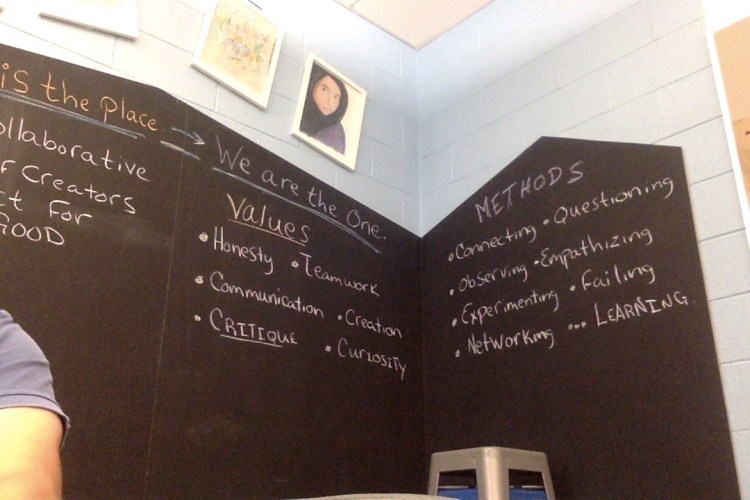 is the Place.
collaborative
of Creators
ct For
GOOD
→ We are the One.
Values
• Honesty • Teamwork
• Communication • Creation
• CRITIQUE • CURIOSITY
METHODS
• Connecting • Questioning
• Observing • Empathizing
• Experimenting • Failing
• Networking ... LEARNING